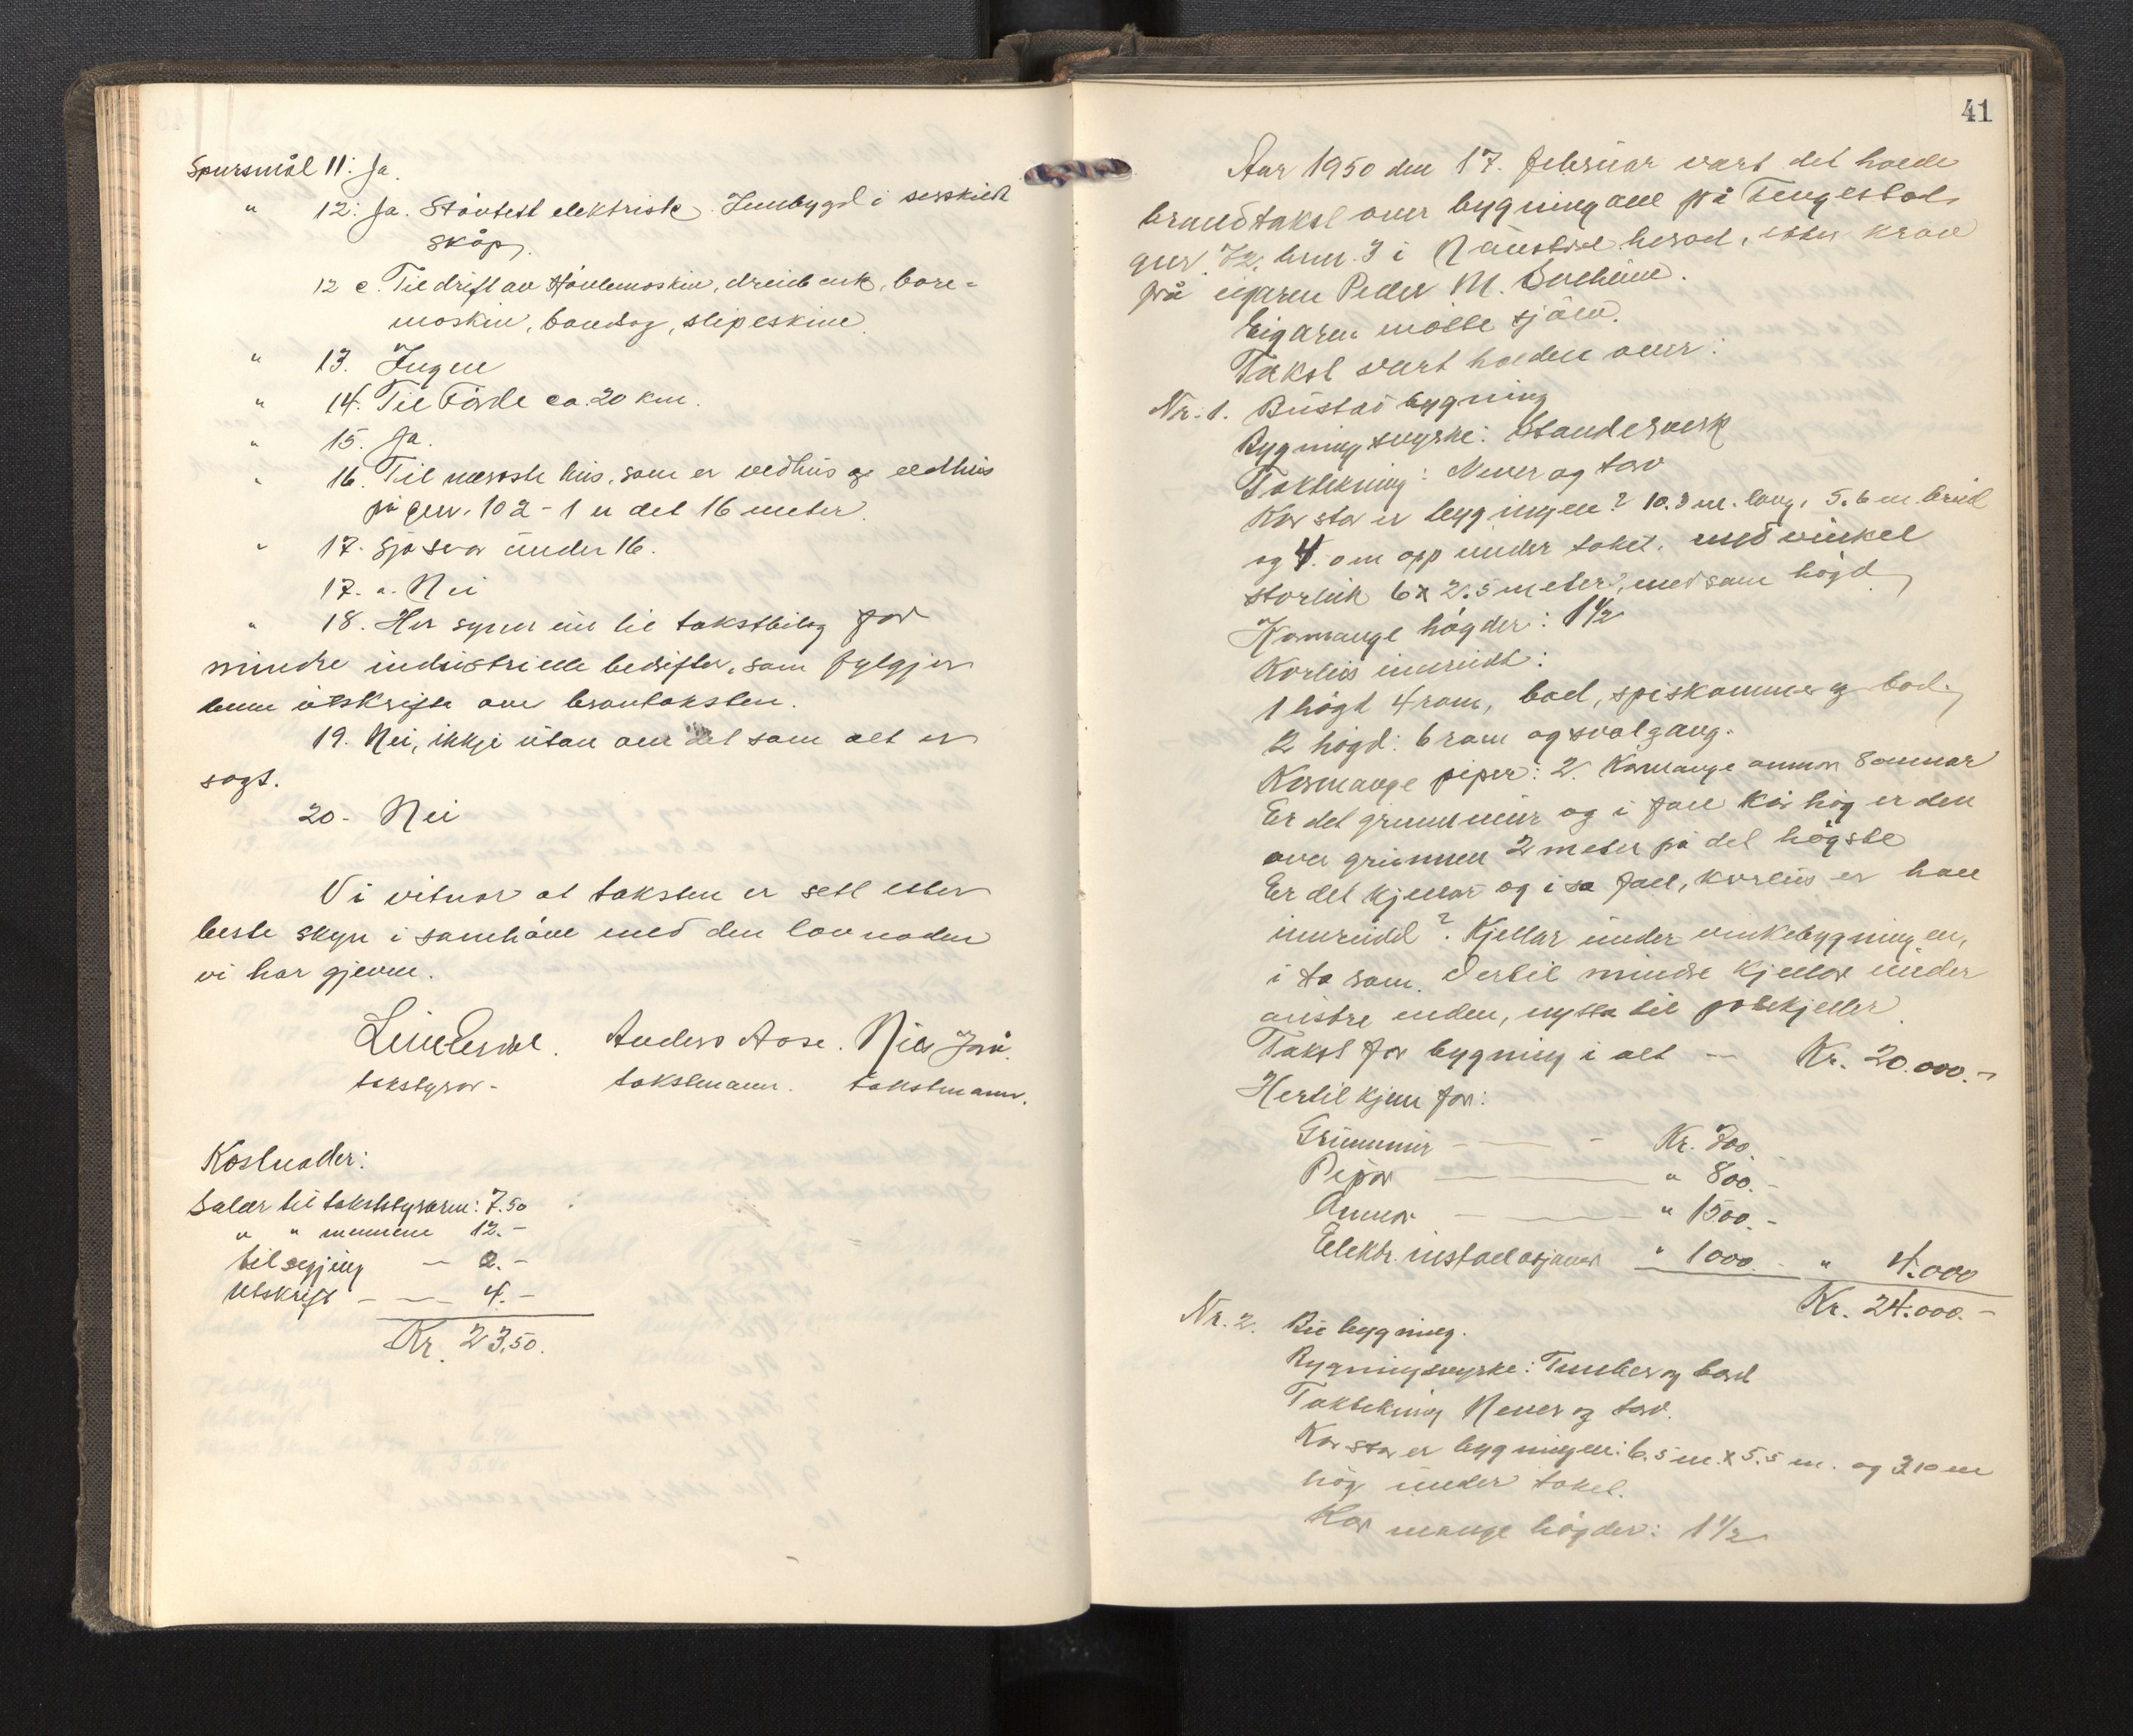 Spursmål 11: Ja.
" 12: Ja. Støvtett elektrisk. Innbygd i serskildt
skåp.
12 c. Til drift av Høvlemaskin, dreiebenk, bore-
maskin, bandsag, slipeskive.
" 13. Ingen
" 14. Til Førde ca. 20 km.
" 15. Ja.
" 16. Til næraste hus, som er vedhus og eldhus
på gnr. 102 - 1 er det 16 meter.
" 17. Sjå svar under 16.
17. a. Nei
" 18. Her syner ein til takstbilag for
mindre industrielle bedrifter, som fylgjer
denne utskrifta av branntaksten.
19. Nei, ikkje utan om det som alt er
sagt.
20- Nei
Vi vitnar at taksten er sett etter
beste skyn i samhøve med den lovnaden
vi har gjeve.
Anders Aase. Nils
takstyrar- takstmann. takstmann.
Kostnader:
Salær til takststyraren: 7.50
" " mennene 12.-
tilsegjing - 0.-
Utskrift - - 4.-
Kr. 23,50.
41
Aar 1950 den 17. februar vart det halde
brandtakst over bygningane på Tengestøl
gnr. 72, bnr. 3 i Naustdal herad, etter krav
frå eigaren Peder M.
Eigaren møtte sjølv.
Takst vart halden over:
Nr. 1. Bustad bygning
Bygningsvyrke: Standerverk
Taktekning: Never og torv
Kor stor er bygningen? 10.8 m. lang, 5.6 m. breid
og 4. om opp under taket. med vinkel
storleik 6 x 2.5 meter, med same høgd
Kormange høgder: 1 1/2
Korleis innreidt:
1 høgd 4 rom, bad, spiskammer og bod.
2 høgd: 6 rom og svalgang.
Kormange piper: 2. Kormange omnar 8 omnar
Er det grunnmur og i fall kor høg er den
over grunnen 2 meter på det høgste
Er det kjellar og i so fall, korleis er han
innreidd? Kjellar under vinkelbygningen,
i to rom. Dertil mindre kjellar under
austre enden, nytta til potekjeller.
Takst for bygning i alt - Kr. 20.000.-
Hertil kjem for:
Grunnmur - - - Kr. 700.
Pipor - - " 800.-
Omnar - - " 1500.-
Elektr. installasjoner " 1000.- " 4.000
Kr. 24.000.-
Nr. 2. Bu bygning.
Bygningsvyrke: Tømber og bord
Taktekning Never og torv.
Kor stor er bygningen: 6.5 m. x 5.5 m. og 3.10 m
høg under taket.
Kor mange høgder: 1 1/2